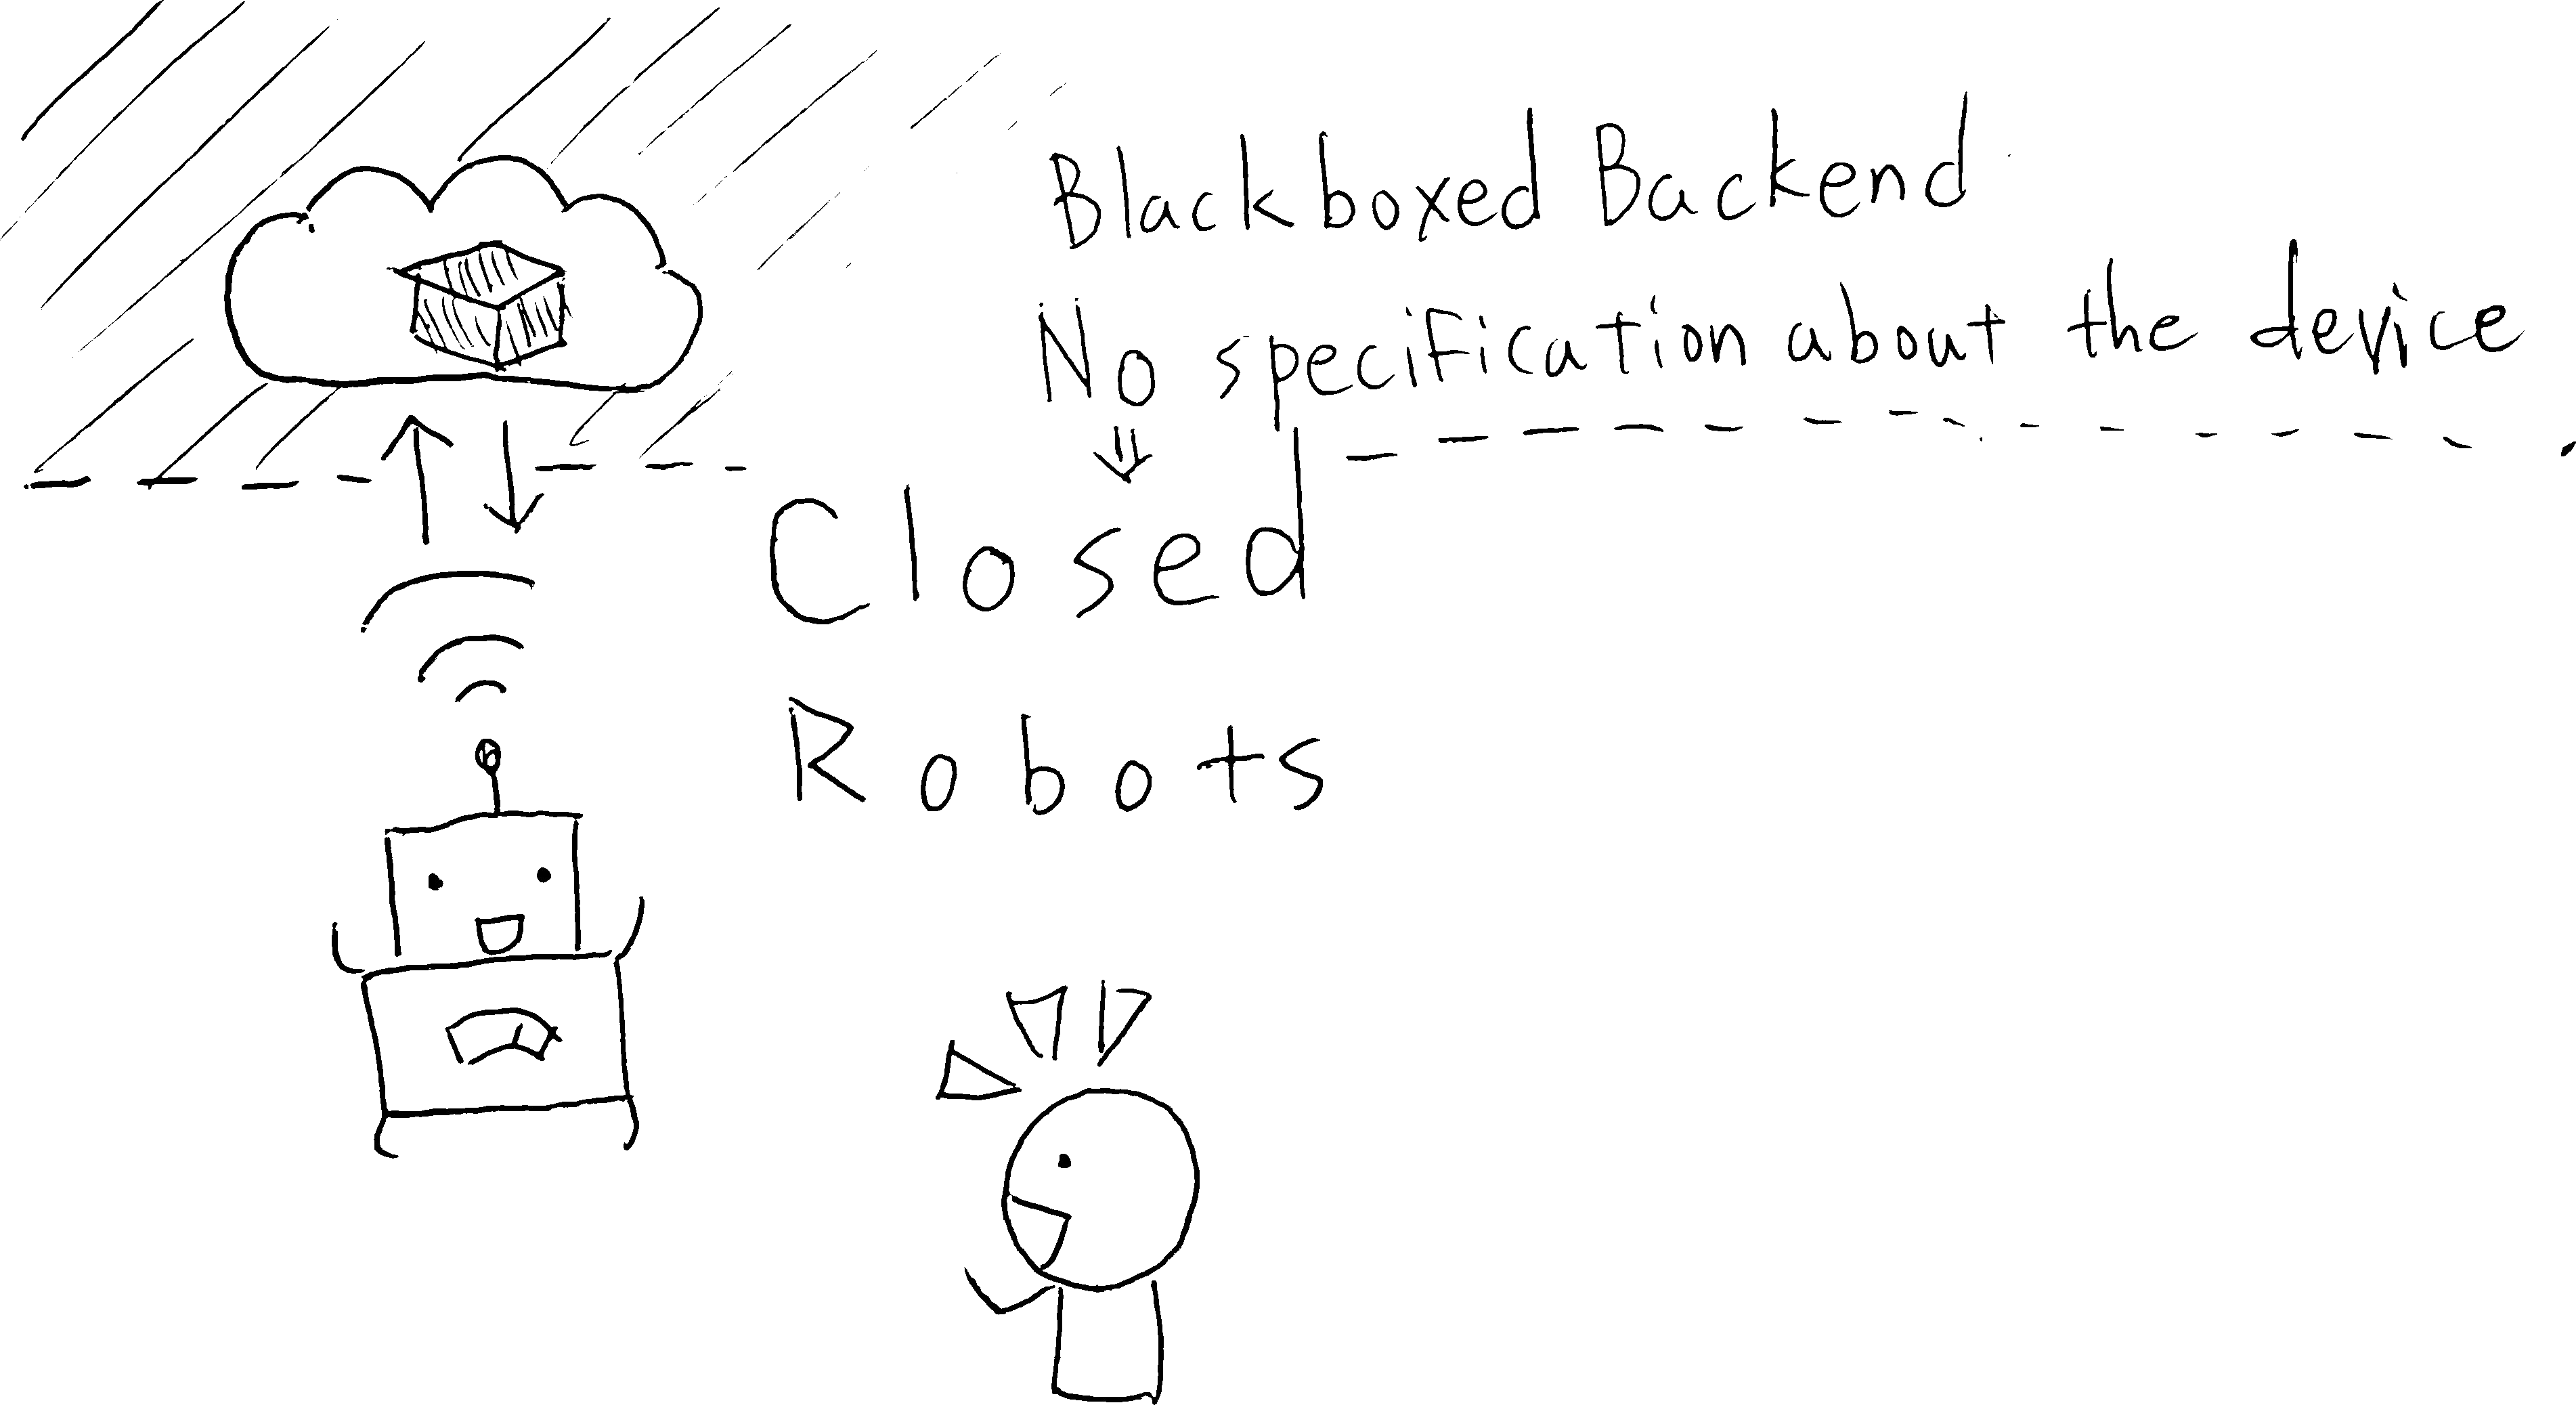 Blackboxed Backend
No specification about the device
⇓
Closed
Robots